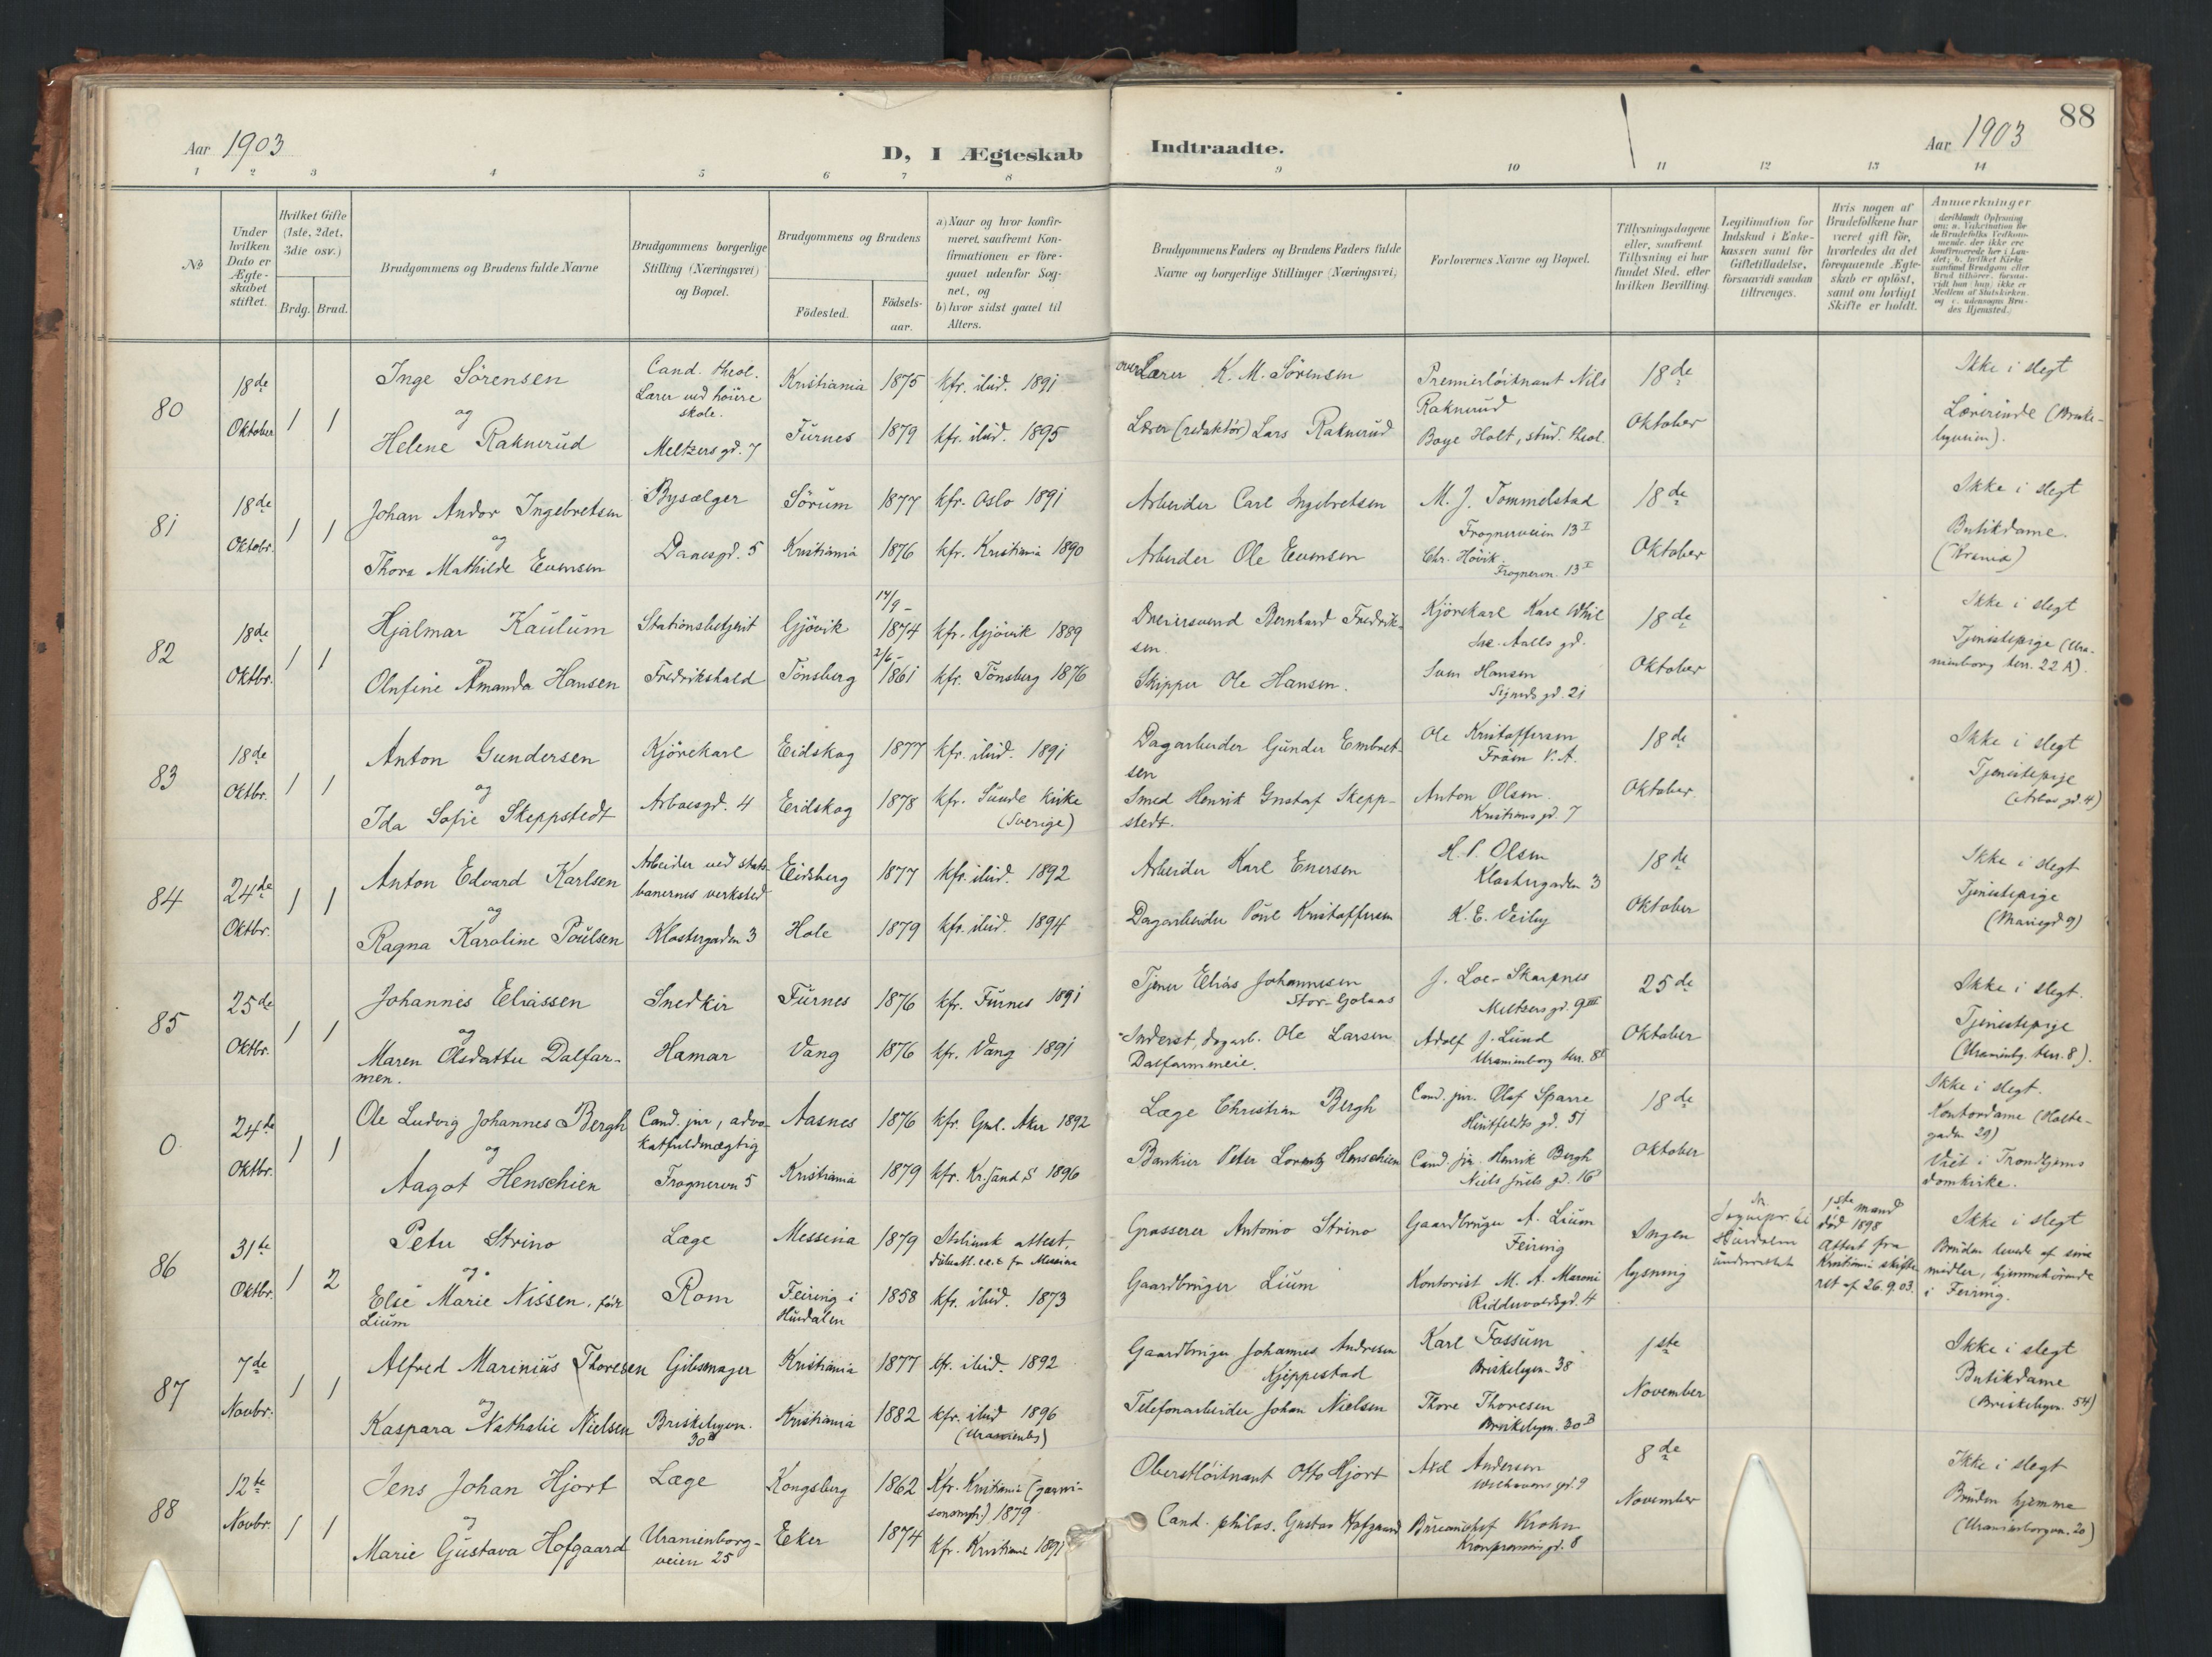 88
Aar 1903
D, I Ægteskab
Indtraadte.
Aar 1903
1 2 3 4 5 6 7 8 9 10 11 12 13 14
No
Under
hvilken
Dato er
Ægte-
skabet
stiftet.
Hvilket Gifte
(1ste, 2det,
3die osv.)
Brdg. Brud.
Brudgommens og Brudens fulde Navne
Brudgommens borgerlige
Stilling (Næringsvei)
og Bopæl.
Brudgommens og Brudens
Födested.
Födsels-
aar.
a) Naar og hvor konfir-
meret, saafremt Kon-
firmationen er fore-
gaaet udenfor Sog-
net, og
b) hvor sidst gaaet til
Alters.
Brudgommens Faders og Brudens Faders fulde
Navne og borgerlige Stillinger (Næringsvei)
Forlovernes Navne og Bopæl.
Tillysningsdagene
eller, saafremt
Tillysning ei har
fundet Sted, efter
hvilken Bevilling.
Legitimation for
Indskud i Enke-
kassen samt for
Giftetilladelse,
forsaavidt saadan
tiltrænges.
Hvis nogen af
Brudefolkene har
været gift før,
hvorledes da det
foregaaende Ægte-
skab er oplöst,
samt om lovligt
Skifte er holdt.
Anmærkninger
80
18de
Oktober
1 1
Inge Sörensen
og
Helene Raknerud
Cand. theol.
Lærer ved höiere
skole.
Meltzersgd. 7
Kristiania 1875 kfr. ibid. 1891
Furnes 1879 kfr. ibid. 1895
overLærer K. M. Sörensen
Lærer (redaktör) Lars Raknerud
Premierlöitnant Nils
Raknerud
Boye Holt, stud. theol.
18de
Oktober
Ikke i slegt
Lærerinde
81
18de
Oktobr.
1 1
Johan Andor Ingebretsen
og
Thora Mathilde Evensen
Bysælger
Daaesgd. 5
Sörum 1877 kfr. Oslo 1891
Kristiania 1876 kfr. Kristiania 1890
Arbeider Carl Ingebretsen
Arbeider Ole Evensen
M. J. Tommelstad
Frognerveien 13 I
Chr. Hövik
Frognervn. 13 I
18de
Oktober
Ikke i slegt
Butikdame.
82
18de
Oktbr.
1 1
Hjalmar Kaulum
og
Olufine Amanda Hansen
Stationsbetjent
Fredrikshald
Gjövik 14/9 - 1874 kfr. Gjövik 1889
Tönsberg 2/6 - 1861 kfr. Tönsberg 1876
Dreiersvend Bernhard Fredrik-
sen.
Skipper Ole Hansen.
Kjörekarl Karl
Aalls gd.
Hansen
Sigurds gd. 21
18de
Oktober
Ikke i slegt
Tjenestepige (Ura-
nienborg terr. 22 A).
83
18de
Oktbr.
1 1
Anton Gundersen
og
Ida Sofie Skeppstedt
Kjörekarl
Arboesgd. 4
Eidskog 1877 kfr. ibid. 1891
Eidskog 1878 kfr. Sunde kirke
(Sverige)
Dagarbeider Gunder Embret-
sen
Smed Henrik Gustaf Skepp-
stedt.
Ole Kristoffersen
V. A.
Anton Olsen.
Kristians gd. 7
18de
Oktober.
Ikke i slegt
Tjenestepige
(Arbos gd. 4)
84
24de
Oktbr.
1 1
Anton Edvard Karlsen
og
Ragna Karoline Poulsen
Arbeider ved stats-
banernes verksted
Klostergaden 3
Eidsberg 1877 kfr. ibid. 1892
Hole 1879 kfr. ibid. 1894
Arbeider Karl Enersen
Dagarbeider Poul Kristoffersen
H. P. Olsen
Klostergaden 3
K. E. Veiby
18de
Oktober
Ikke i slegt
Tjenestepige
(Mariegd 9)
85
25de
Oktbr.
1 1
Johannes Eliassen
og
Maren Olsdatter Dalfar-
men.
Snedker
Hamar
Furnes 1876 kfr. Furnes 1891
Vang 1876 kfr. Vang 1891
Tjener Elias Johannesen
Stor-Golaas
Inderst, dagarb. Ole Larsen
Dalfarmmeie.
J. Loe-Skarpnes
Meltzersgd. 9 III
Adolf J. Lund
Uranienborg terr. 8 I
25de
Oktober
Ikke i slegt.
Tjenestepige
(Uranienbg. terr. 8).
0
24de
Oktbr.
1 1
Ole Ludvig Johannes Bergh
og
Aagot Henschien
Cand. jur, advo-
katfuldmægtig
Frognervn 5
Aasnes 1876 kfr. Gml. Aker 1892
Kristiania 1879 kfr. Kr.sand S 1896
Læge Christian Bergh
Bankier Peter Lorentz Henschien
Cand. jur. Olaf Sparre
Huitfeldts gd. 51
Cand. jur. Henrik Bergh
Niels Juels gd. 16
18de
Oktober
Ikke i slegt.
Kontordame (Holte-
gaden 29)
Viet i Trondhjems
domkirke.
86
31te
Oktbr.
1 2
Peter Strino
og
Else Marie Nissen, född
Lium
Læge
Rom
Messina 1879
attest,
fra Messina
Feiring i
Hurdalen
1858 kfr. ibid. 1873
Grosserer Antonio Strino
Gaardbruger Lium
Gaardbruger A. Lium
Feiring
Kontorist M. A. Maroni
Riddervoldsgd. 4
Ingen
lysning
Sognepr. i
Hurdalen
underrettet
1ste mand
död 1898
Attest fra
Kristiania skifte-
ret af 26.9.03.
Ikke i slegt
Bruden levede af sine
midler, hjemmehörende
i Feiring.
87
7de
Novbr.
1 1
Alfred Marinius Thoresen
og
Kaspara Nathalie Nielsen
Gibsmager
Briskebyvn.
30 B
Kristiania 1877 kfr. ibid. 1892
Kristiania 1882 kfr. ibid 1896
(Uranienbg)
Gaardbruger Johannes Andresen
Kjeppestad
Telefonarbeider Johan Nielsen
Karl Fossum
Briskebyvn. 38
Thore Thoresen
Briskebyvn. 30 B
1ste
November
Ikke i slegt
Butikdame
(Briskebyvn. 54)
88
12te
Novbr.
1 1
Jens Johan Hjort
og
Marie Gustava Hofgaard
Læge
Uranienborg-
veien 25
Kongsberg 1862 Kfr. Kristiania (garni-
sonsmgh.) 1879
Eker 1874 kfr. Kristiania 1891
Oberstlöitnant Otto Hjort
Cand. philos. Gustav Hofgaard
Axel Andersen
Welhavens gd. 9
Bureauchef Krohn
Kronprinsens gd. 8
8de
November
Ikke i slegt
Bruden hjemme
(Uranienborgvn. 20)